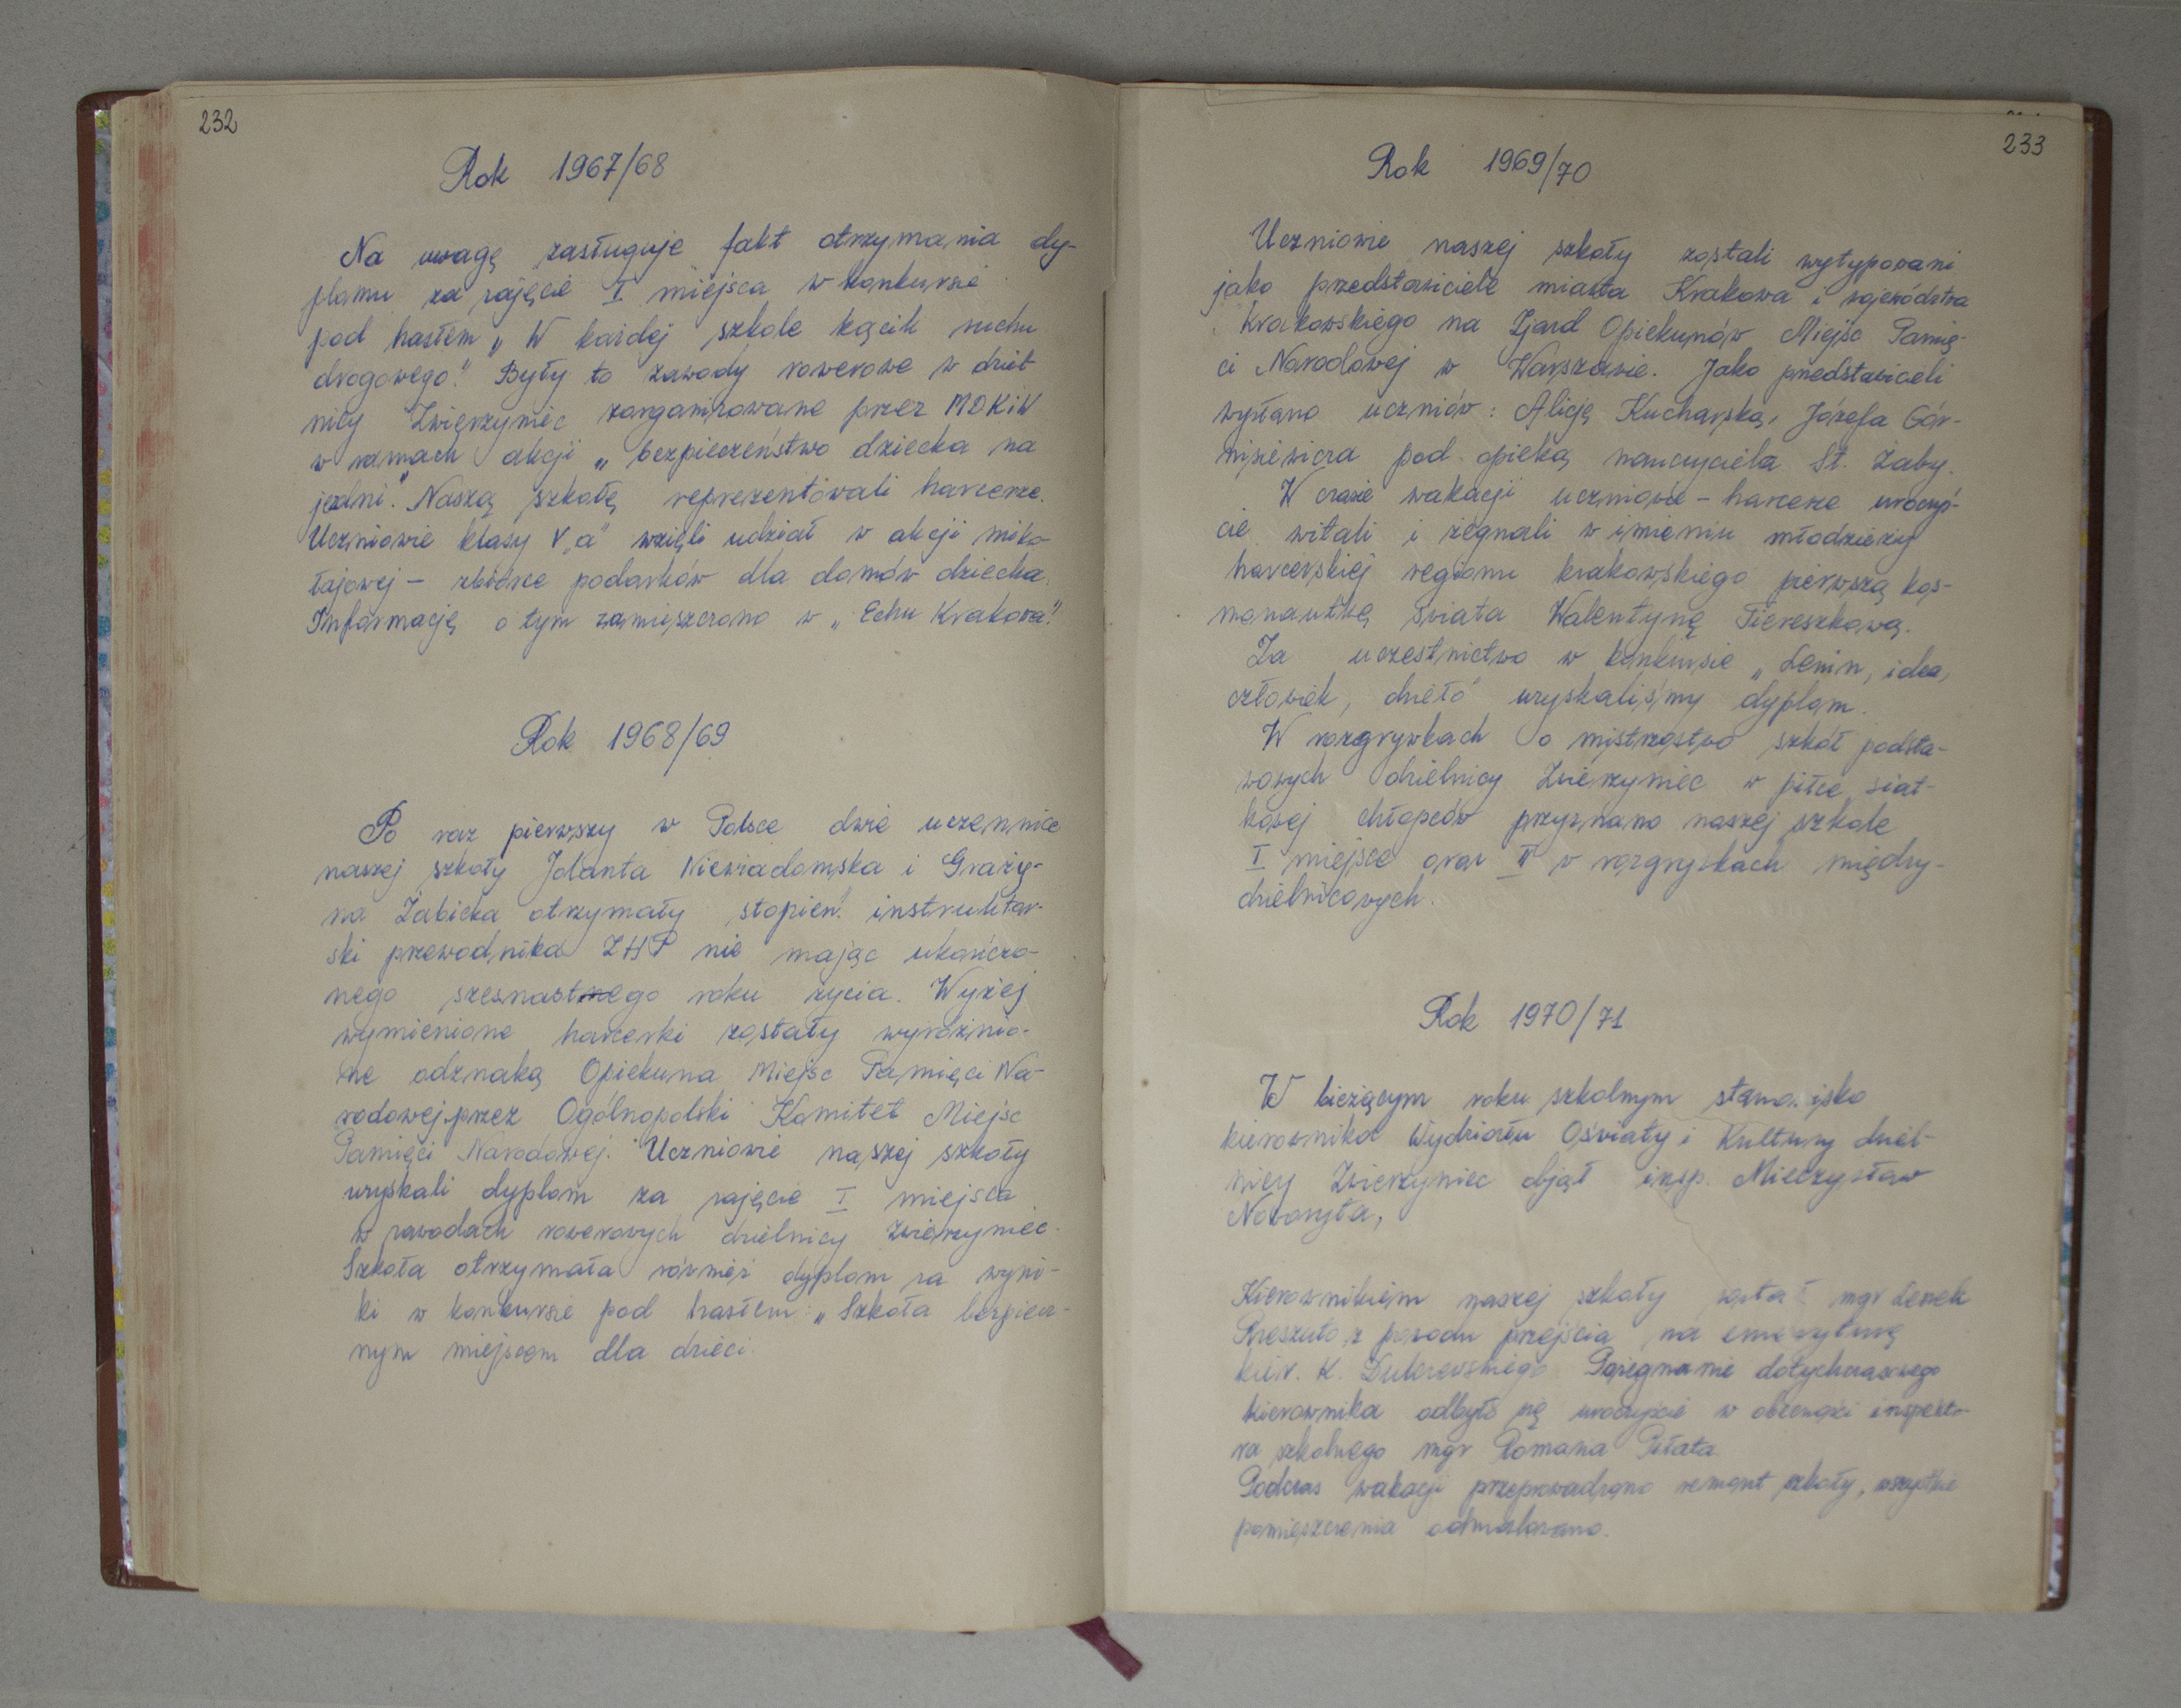 232
Rok 1967/68
Na uwagę zasługuje fakt otrzymania dy-
plomu za zajęcie I miejsca w konkursie
pod hasłem „W każdej szkole kącik ruchu
drogowego." Były to zawody rowerowe w dziel
nicy Zwierzyniec zorganizowane przez MDKiW
w ramach akcji „bezpieczeństwo dziecka na
jezdni". Naszą szkołę reprezentowali harcerze.
Uczniowie klasy V „a" wzięli udział w akcji miko-
łajowej – zbiórce podarków dla domów dziecka.
Informację o tym zamieszczono w „Echu Krakowa".
Rok 1968/69
Po raz pierwszy w Polsce dwie uczennice
naszej szkoły Jolanta Niewiadomska i Graży-
na Żabicka otrzymały stopień instruktor-
ski przewodnika ZHP nie mając ukończo-
nego szesnastego roku życia. Wyżej
wymienione harcerki zostały wyróżnio-
ne odznaką Opiekuna Miejsc Pamięci Na-
rodowej przez Ogólnopolski Komitet Miejsc
Pamięci Narodowej. Uczniowie naszej szkoły
uzyskali dyplom za zajęcie I miejsca
w zawodach rowerowych dzielnicy Zwierzyniec.
Szkoła otrzymała również dyplom za wyni-
ki w konkursie pod hasłem: „Szkoła bezpiecz-
nym miejscem dla dzieci.
233
Rok 1969/70
Uczniowie naszej szkoły zostali wytypowani
jako przedstawiciele miasta Krakowa i województwa
Krakowskiego na Zjazd Opiekunów Miejsc Pamię-
ci Narodowej w Warszawie. Jako przedstawicieli
wysłano uczniów: Alicję Kucharską, Józefa Gór-
nisiewicza pod opieką nauczyciela St. Żaby.
W czasie wakacji uczniowie – harcerze uroczyś-
cie witali i żegnali w imieniu młodzieży
harcerskiej regionu krakowskiego pierwszą kos-
monautkę świata Walentynę Tiereszkową.
Za uczestnictwo w konkursie „Lenin, idea,
człowiek, dzieło" uzyskaliśmy dyplom.
W rozgrywkach o mistrzostwo szkół podsta-
wowych dzielnicy Zwierzyniec w piłce siat-
kowej chłopców przyznano naszej szkole
I miejsce oraz II w rozgrywkach między-
dzielnicowych.
Rok 1970/71
W bieżącym roku szkolnym stanowisko
kierownika Wydziału Oświaty i Kultury dziel-
nicy Zwierzyniec objął insp. Mieczysław
Noworyta,
Kierownikiem naszej szkoły został mgr Leszek
z powodu przejścia na emeryturę
kier. K. Pożegnanie dotychczasowego
kierownika odbyło się uroczyście w obecności inspekto-
ra szkolnego mgr Romana
Podczas wakacji przeprowadzono remont szkoły, wszystkie
pomieszczenia odmalowano.